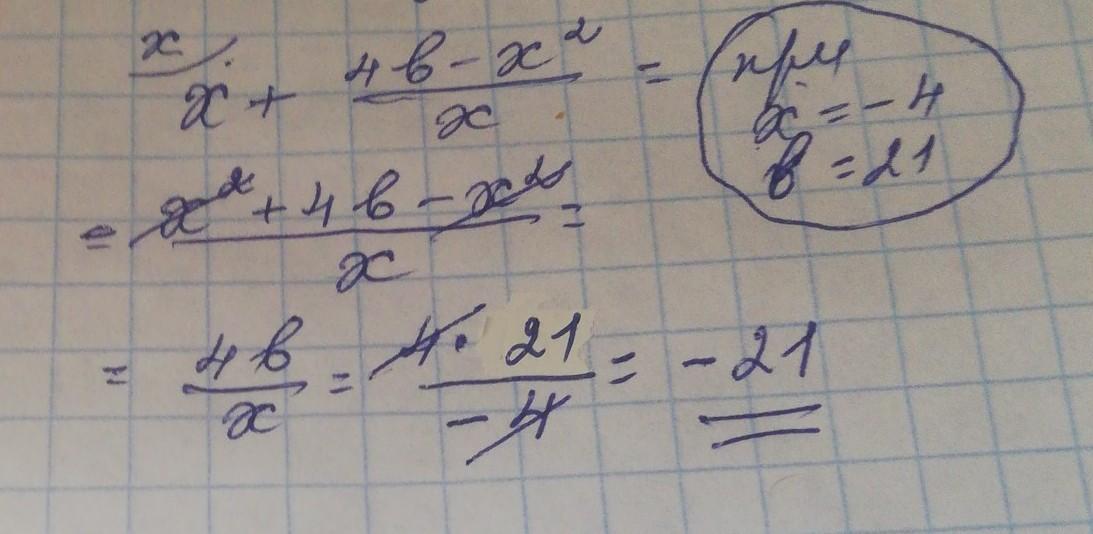 x/ x + (4b - x²)/x =
при
x = -4
b = 21
= (x² + 4b - x²)/x =
= 4b/x = (4 · 21)/(-4) = -21